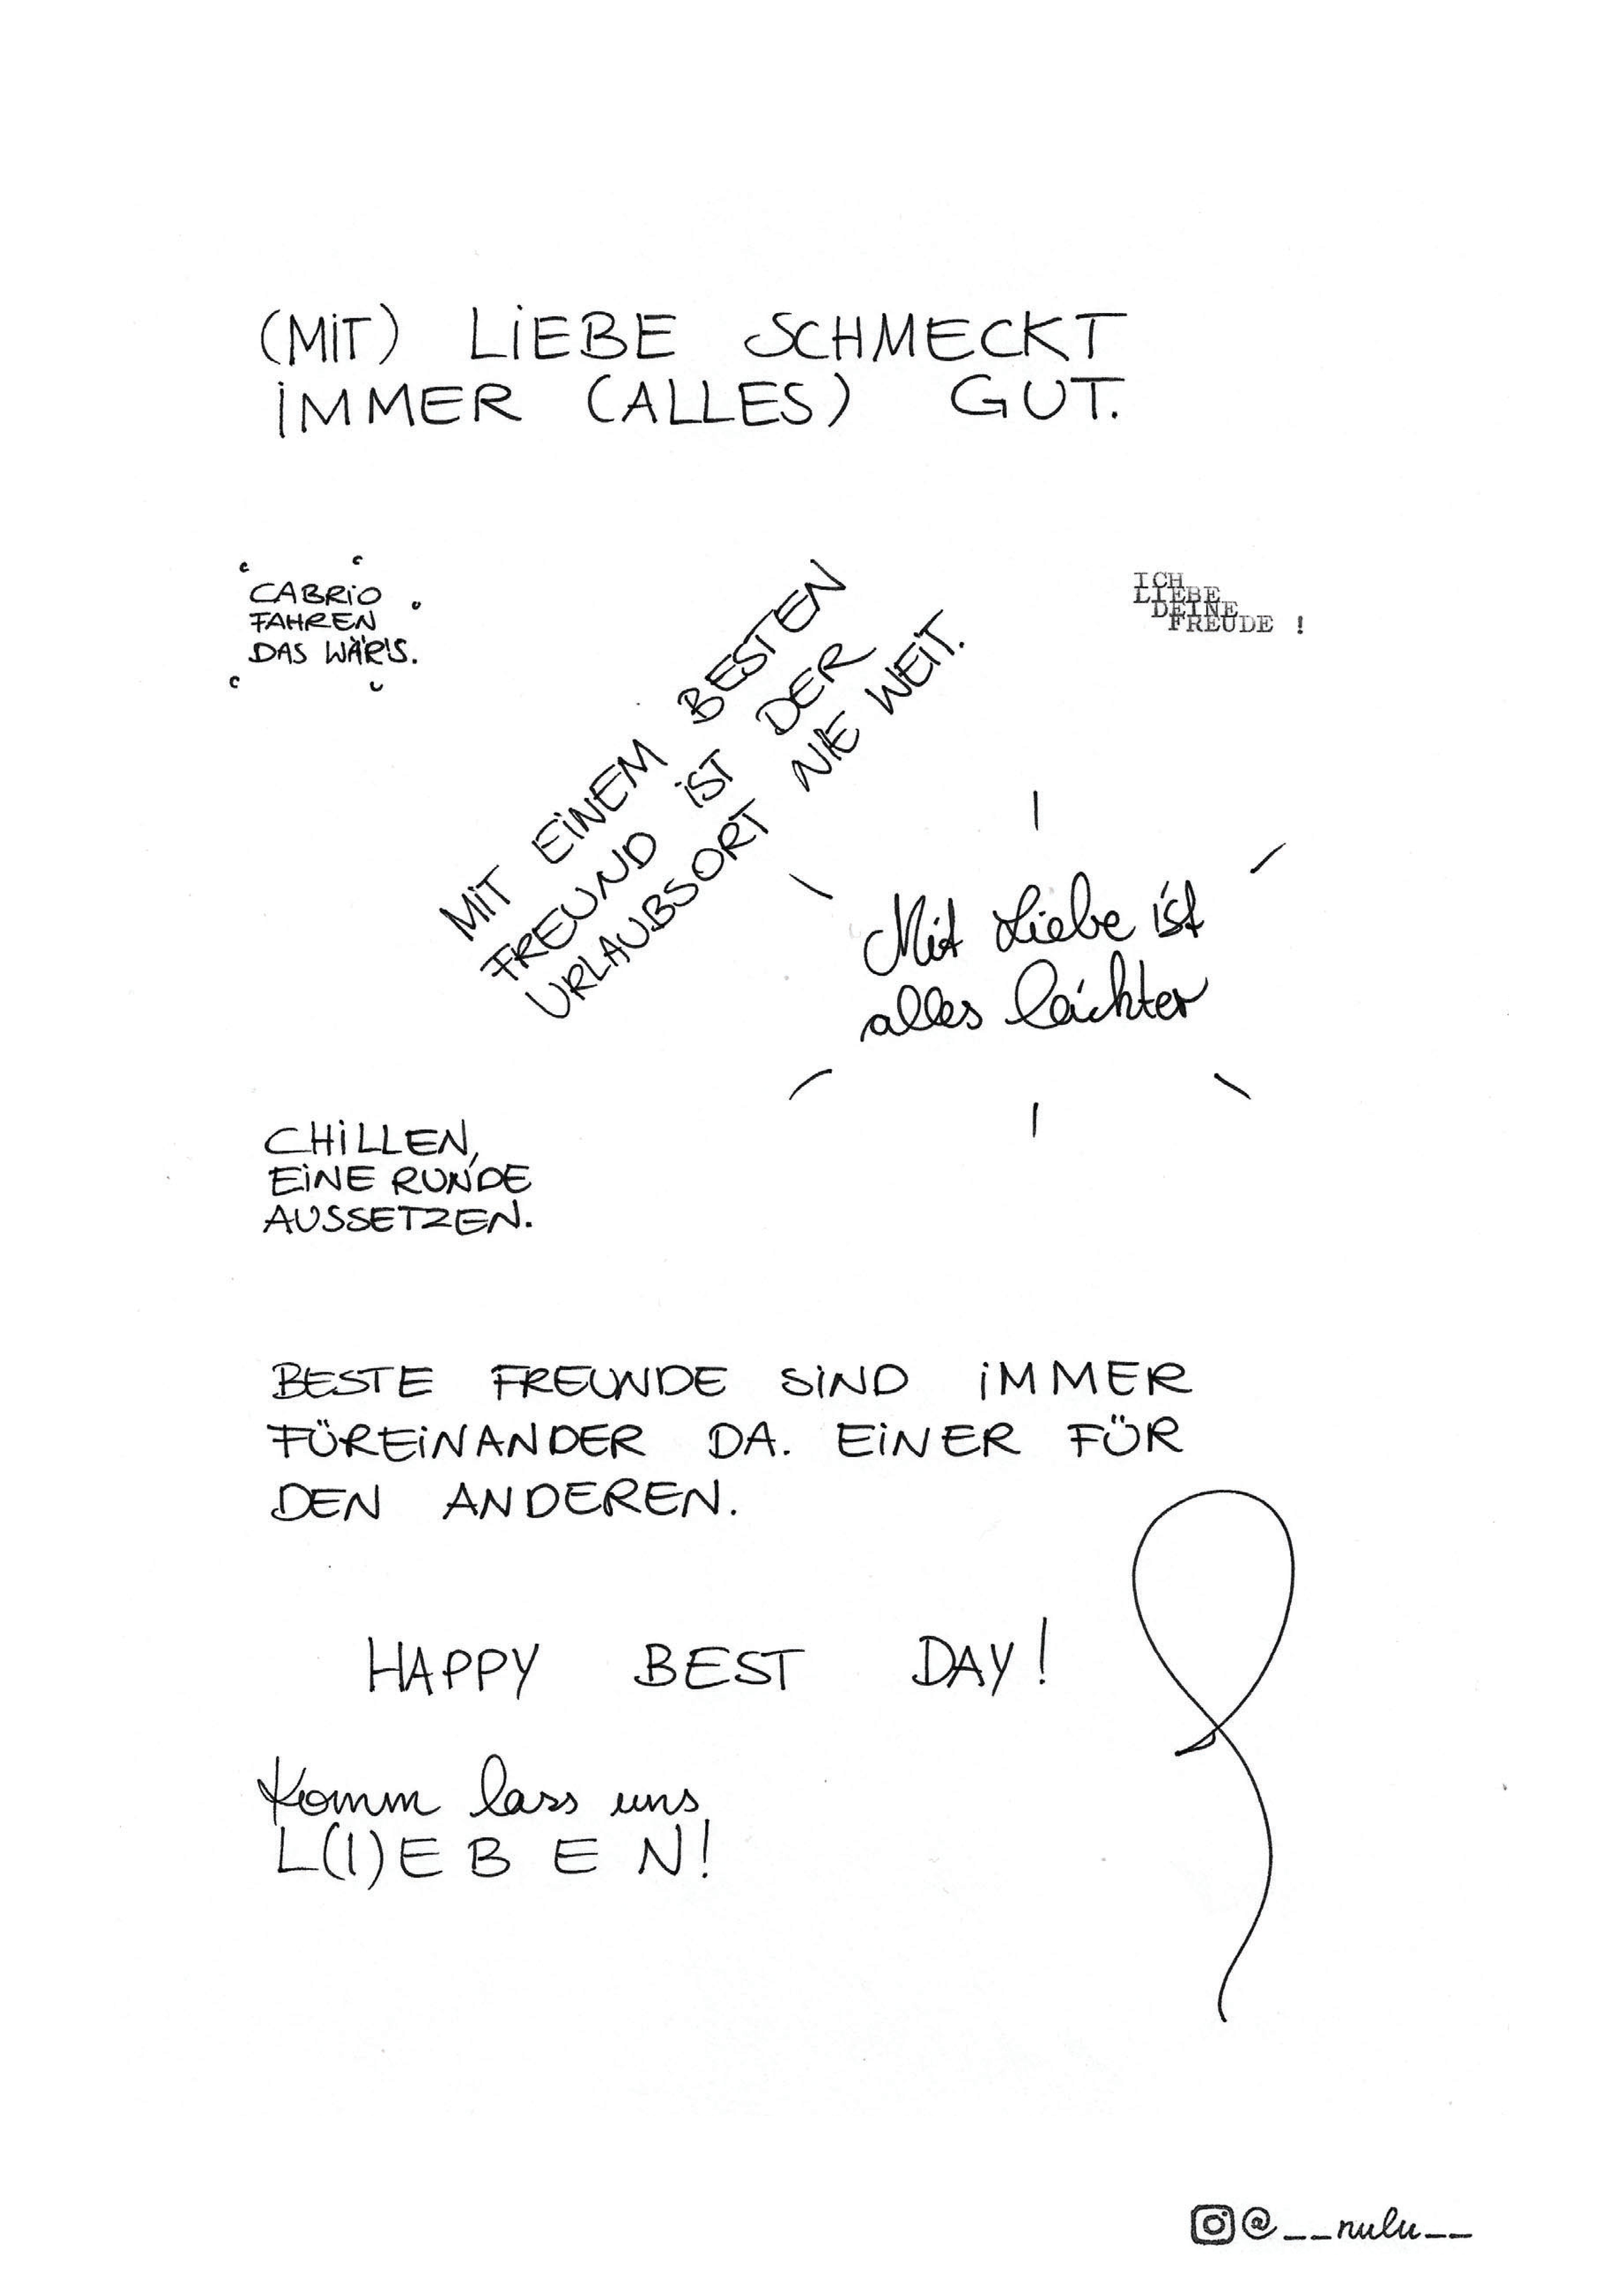 (MiT) LiEBE SCHMECKT
iMMER (ALLES) GUT.
CABRiO
FAHREN
DAS WÄR'S.
MiT EiNEM BESTEN
FREUND iST DER
URLAUBSORT NIE WEiT.
ICH
LIEBE
DEINE
FREUDE !
Mit Liebe ist
alles leichter
CHiLLEN,
EiNE RUNDE
AUSSETZEN.
BESTE FREUNDE SiND iMMER
FÜREiNANDER DA. EiNER FÜR
DEN ANDEREN.
HAPPY BEST DAY!
Komm lass uns
L(I)EBEN!
@__nulu__